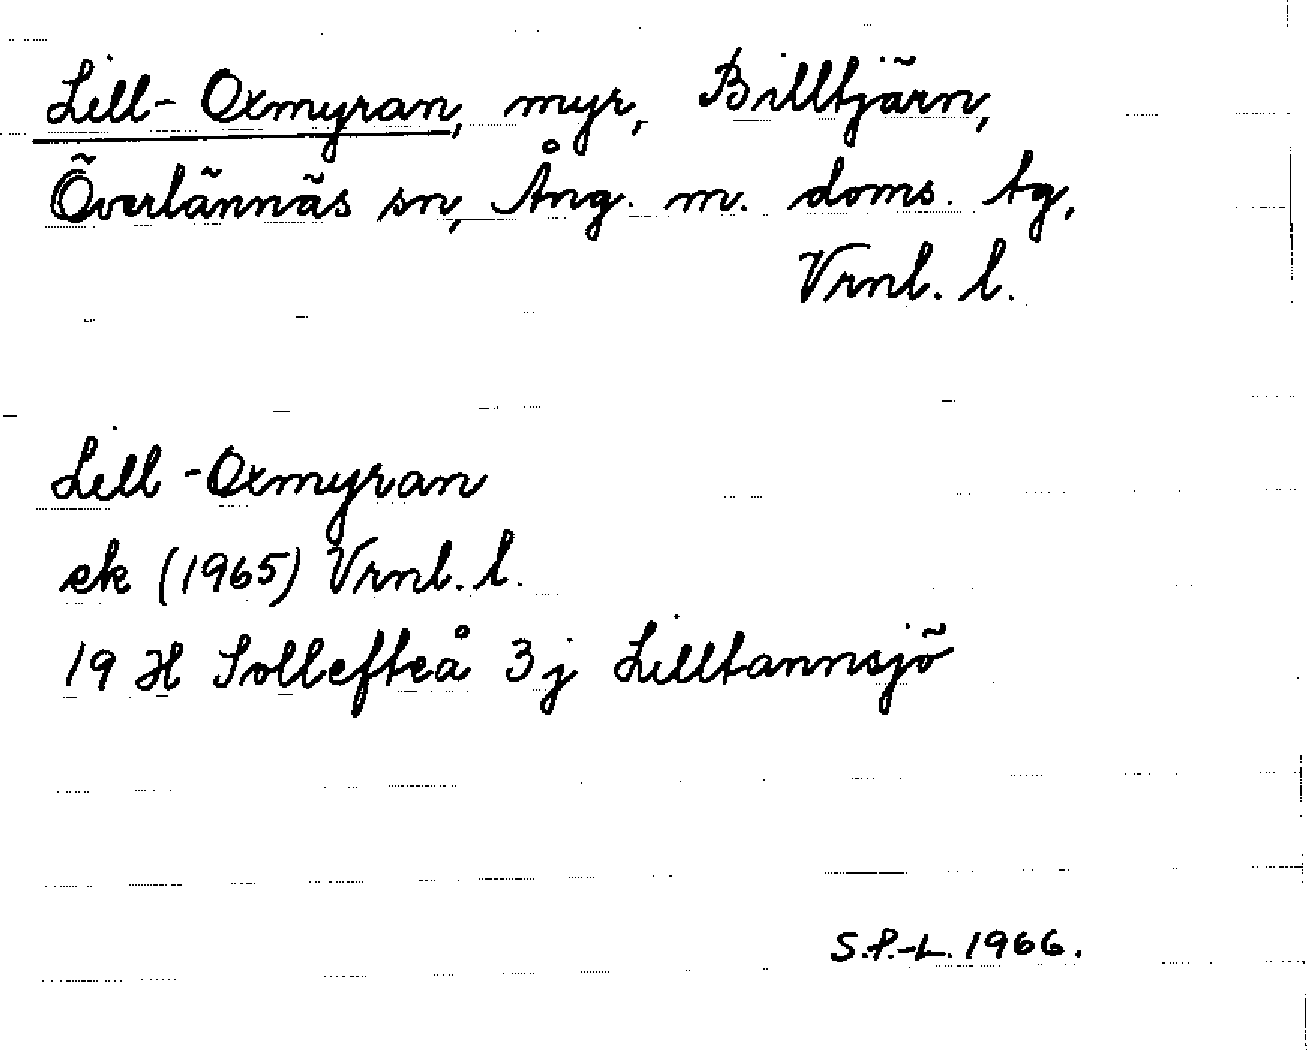 Lill-Oxmyran, myr, Billtjärn,
Överlännäs sn, Ång. m. doms. tg,
Vrnl. l.
Lill-Oxmyran
ek (1965) Vrnl. l.
19 H Sollefteå 3j Lilltannsjö
S.P.-L. 1966.